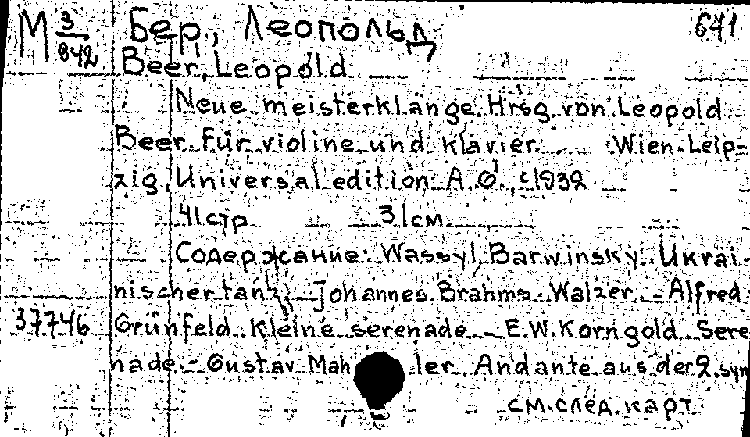 М 3/842 Бер, Леопольд 671
Beer, Leopold
Neue meisterklänge. Hrsg. von Leopold
Beer. Für violine und klavier. Wien-Leip-
zig, Universal edition A.G., c1932
41 стр. 31 см.
Содержание: Wassyl Barwinsky. Ukrai-
nischer tanz. - Johannes Brahms. Walzer. - Alfred
37746 Grünfeld. Kleine serenade. - E.W. Korngold. Sere
nade. - Gustav Mahler. Andante aus der 2. sym
см. след. карт.